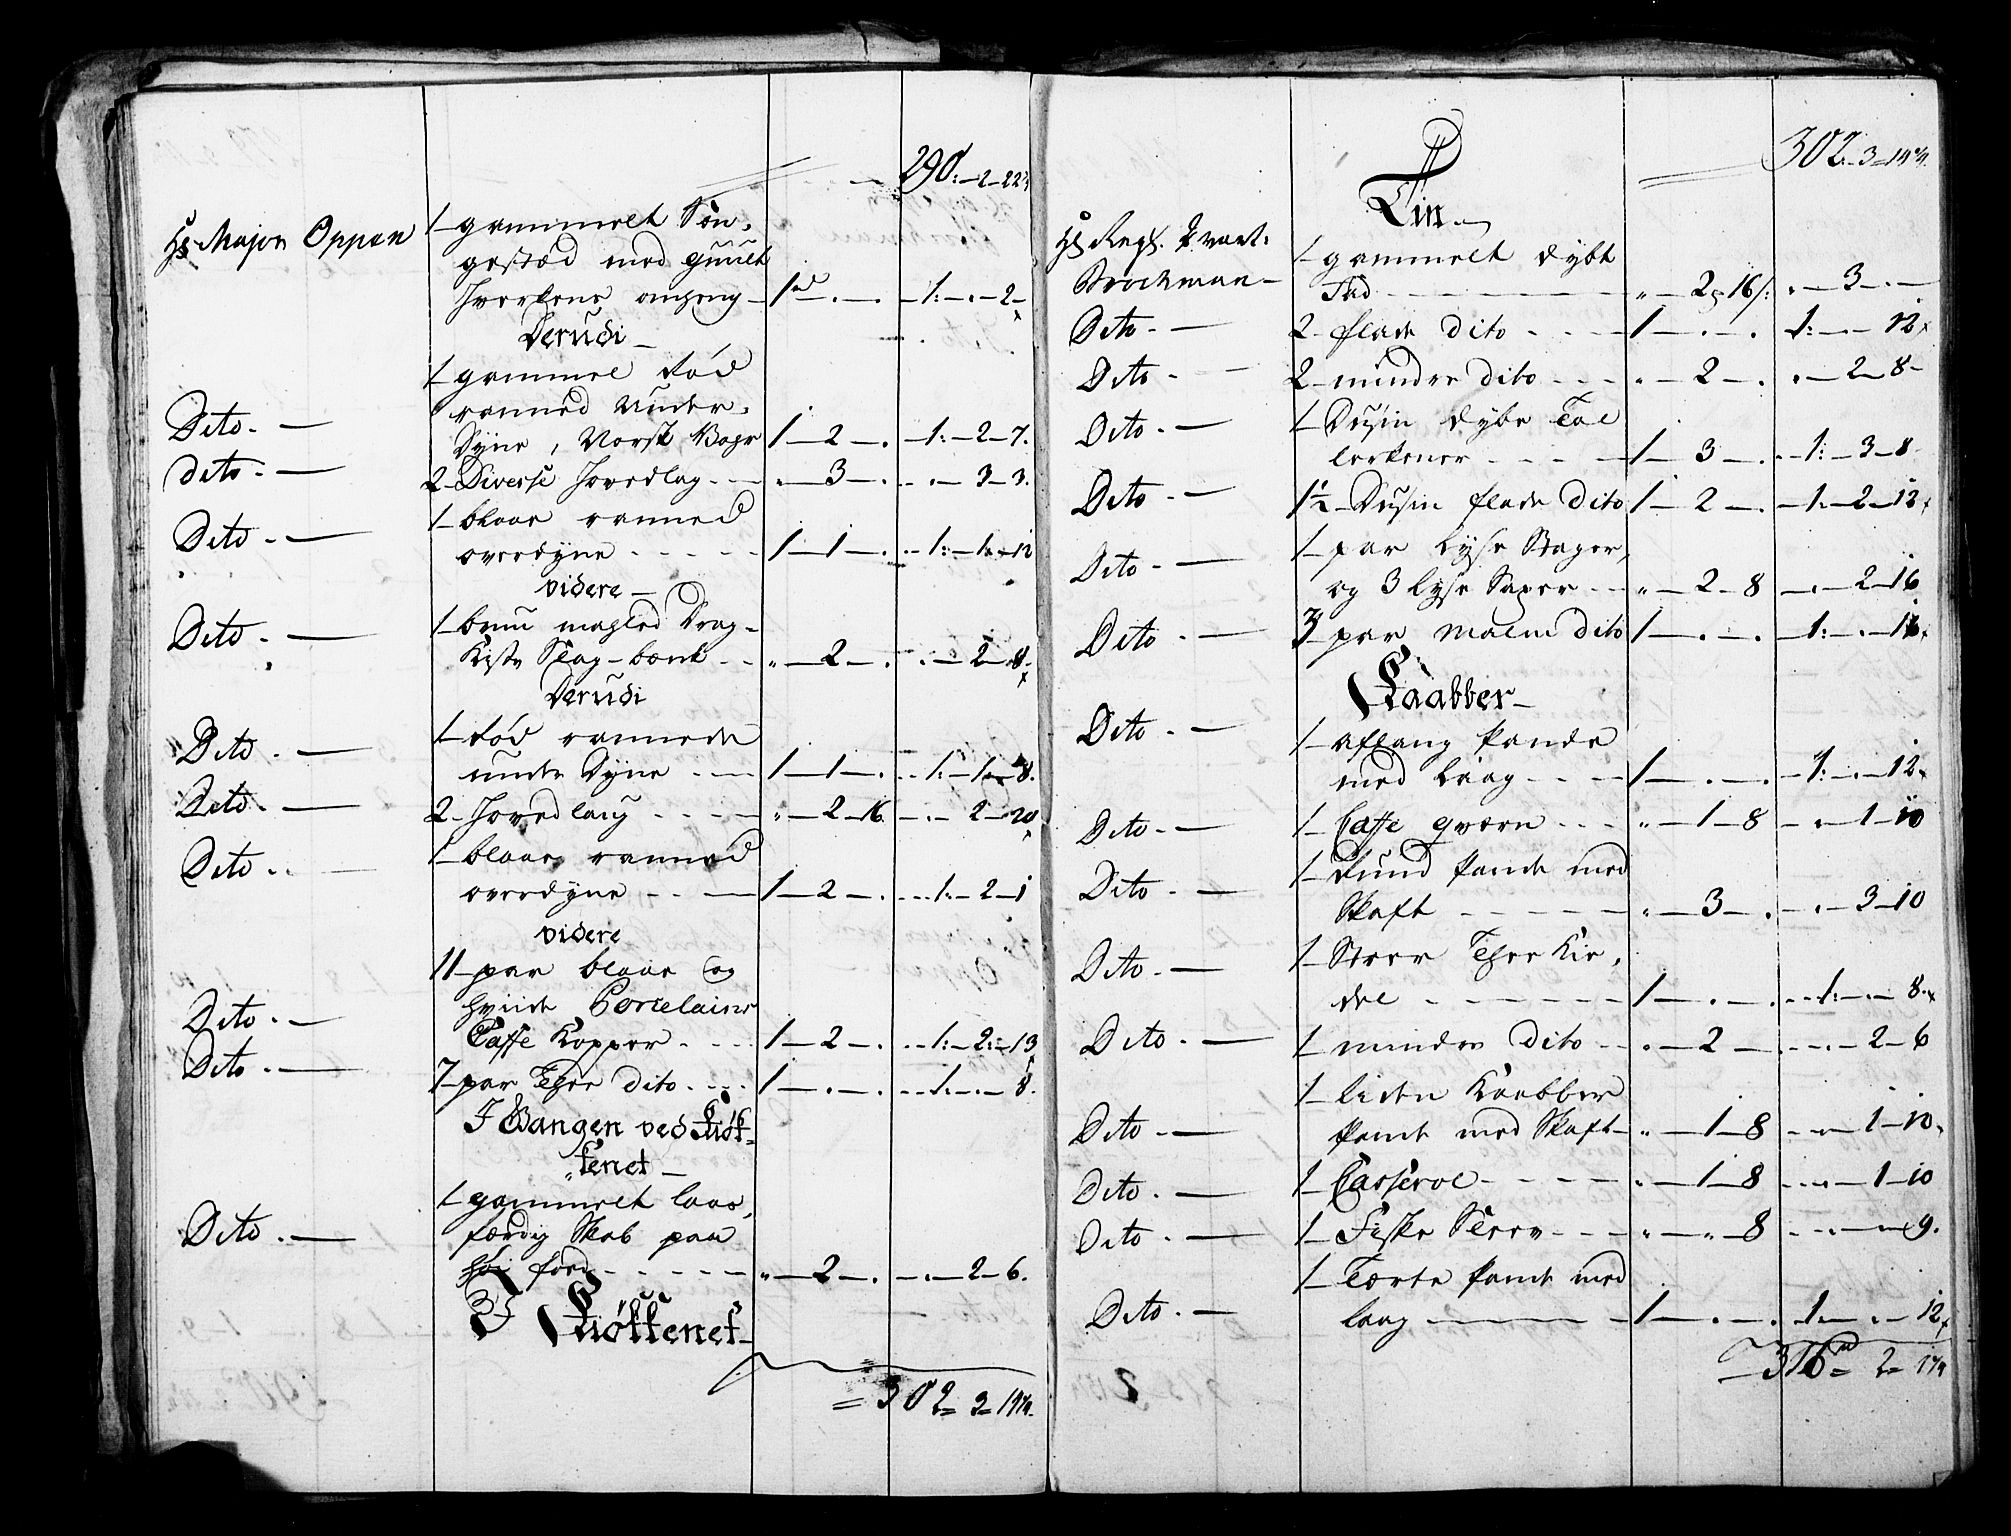 290:-2-22¾
Hr Major Oppen
1- gammelt Sen-
gestæd med guult
omheng- 1rd-.-. -1:-.-2-
Derudi-
1- gammel rød
ranned under-
Dito.-
Dyne, Norsk Vaar 1-2-. -1:-2-7.
dito.- 2- Diverse Hovedlag -- "-3-. -.-3-3.
1- blaae ranned
Dito.- overdyne ---- 1-1-. --1:-1-12
videre-
1- bruun magled Drag-
Dito.- Kiste Slag-bænk -- "-2-. -.-2-8-
Derudi
1- rød rannede
Dito.- under Dyne --- 1-1-. --1:-1-8.
Dito.- 2- Hovedlaug ---- "-2-16 -.-2-20
1- blaae ranned
Dito.- overdyne --- 1-2-. ---1:-2-1
videre
11- par blaae og
hviide Porcelains
Dito.- Caffe Kopper --- 1-2-. --1:-2:-13
Dito.- 7- par Thee dito.--- 1-.-.- --1.-.-8.
I Gangen ved Kiøk-
kenet-
1- gammelt laas,
færdig Skab paa
Dito.- ford ----- "-2-. -.-2-6.
I Kiøkkenet-
= 302= 3= 19¼
302.-3-19¼.
Tin.-
Hr Regt. Qvart:
Brockman-
1- gammelt dybt
Fad ------ "-2-16/: "-3-.-
Dito.- 2- flade dito --- 1-.-. 1:-.-12
Dito- 2- mindre dito --- "-2-. "-2-8-
1- Dusin dybe Tal
Dito.- lerkener --- 1-3-. -1:-3-8
Dito.- 1½- Dusin flade dito 1-2-. -1.-2-12
1- par Lyse Stager,
Dito- og 3 Lyse Saxer -- "-2-8 -.-2-16
Dito.- 3- par Malm dito 1-.-. -1:-.-16
Kaabber-
1- aflang pande
Dito.- med Laag --- 1-.-. -1:-.-12
Dito.- 1- Caffe qværn --- "-1-8 -"-1-10
1- Rund pande med
Dito.- Skaft ----- "-3-. -.-3-10
1- Stoer Thee Kie-
Dito.- del ------ 1-.-. --1:-.-8.
Dito.- 1- mindre dito -- "-2-. --.-2-6
1- liden Kaabber
Dito.- pande med Skaft- "-1-8 --"-1-10
Dito.- 1- Casserol ---- "-1-8 --"-1-10
Dito.- 1- Fiske Sleev --- "-"-8 ---"-9.
1- Tærte pande med
Dito.- laag ------ 1-.-. 1.-.-12
316rd= 2= 1¼